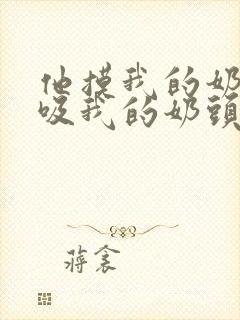 他摸我的奶
吸我的奶頭
蔣衾